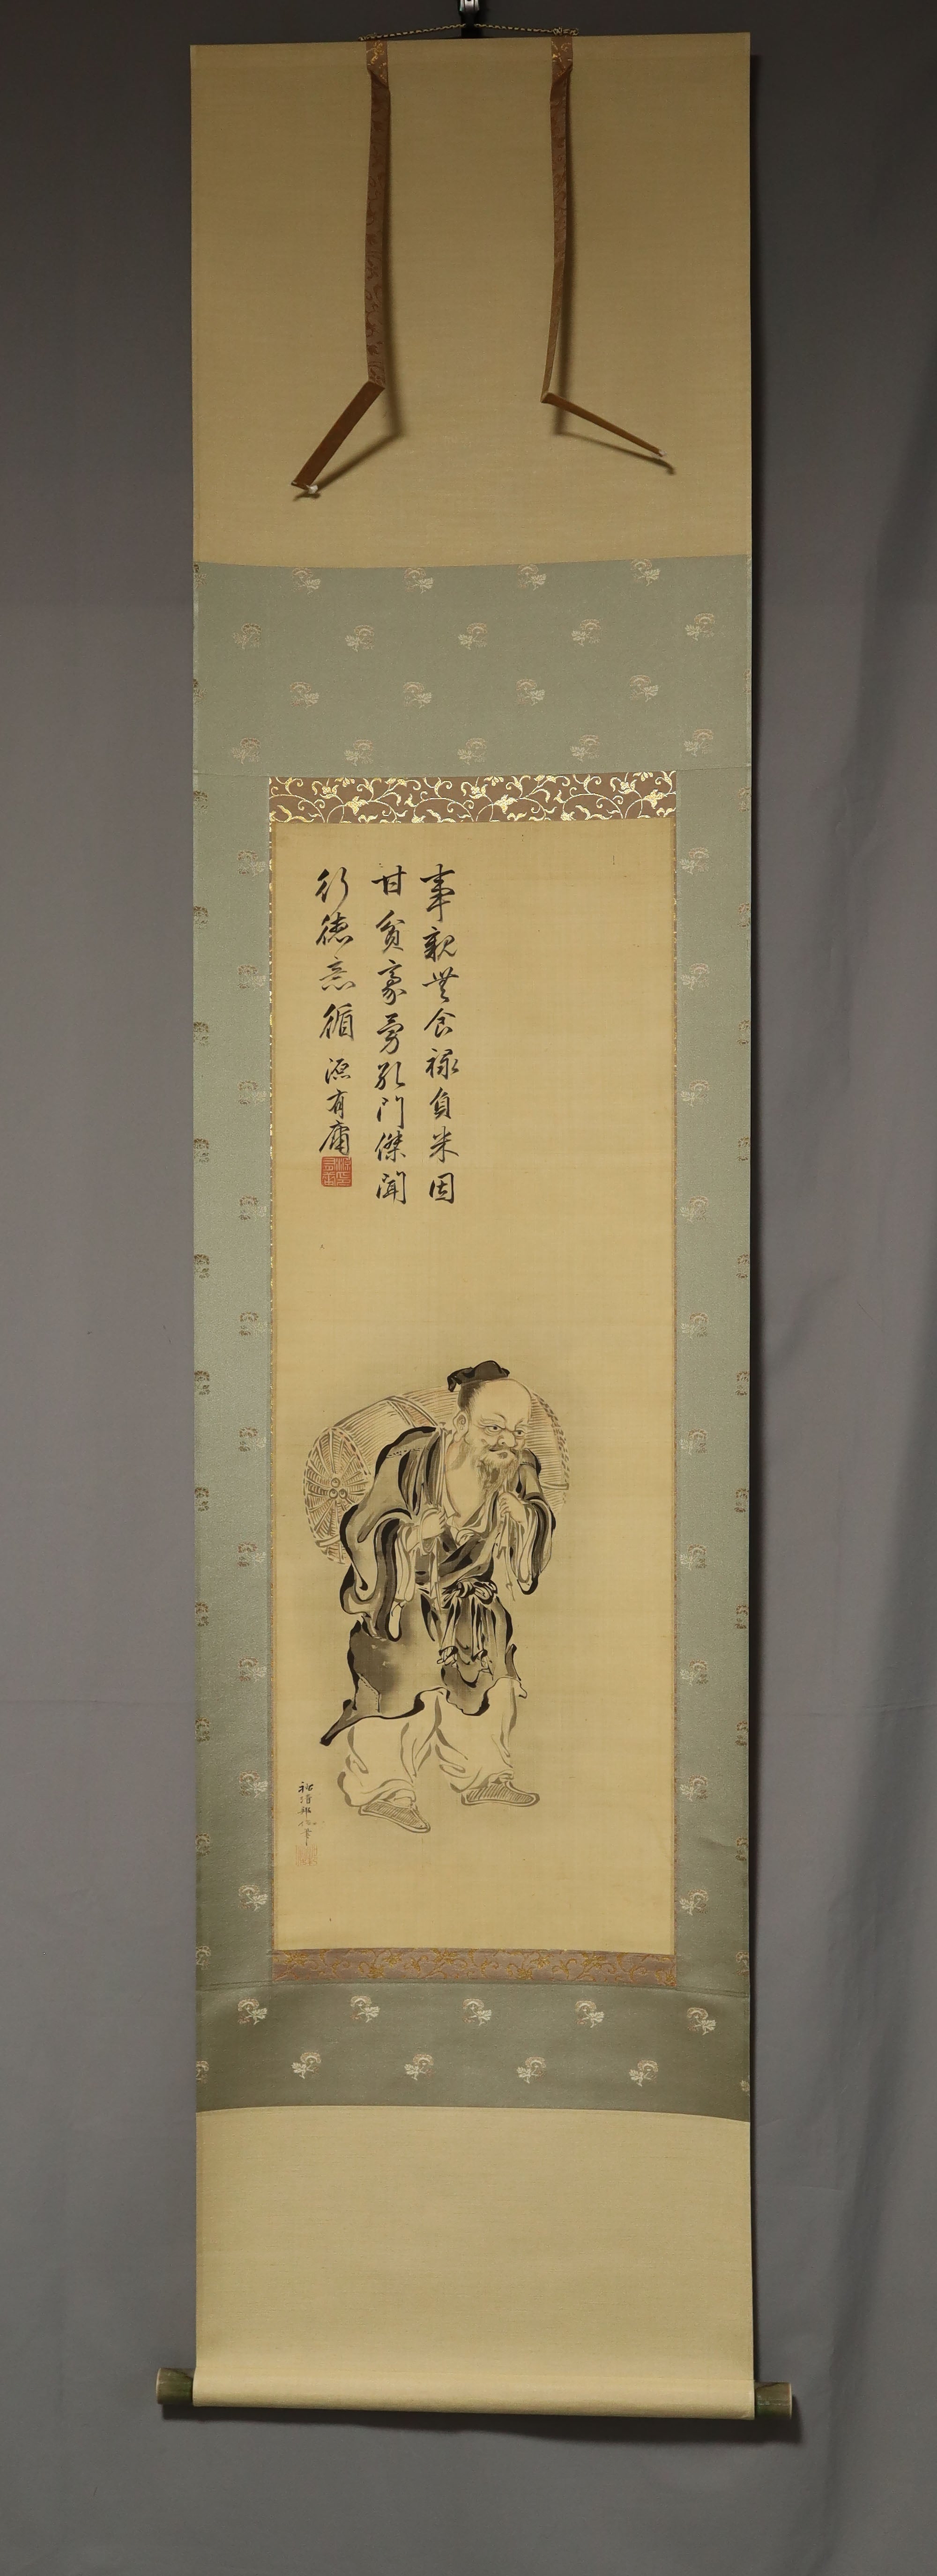 事親無食禄負米因
甘貧豪勇孔門傑聞
行徳意循 源有庸